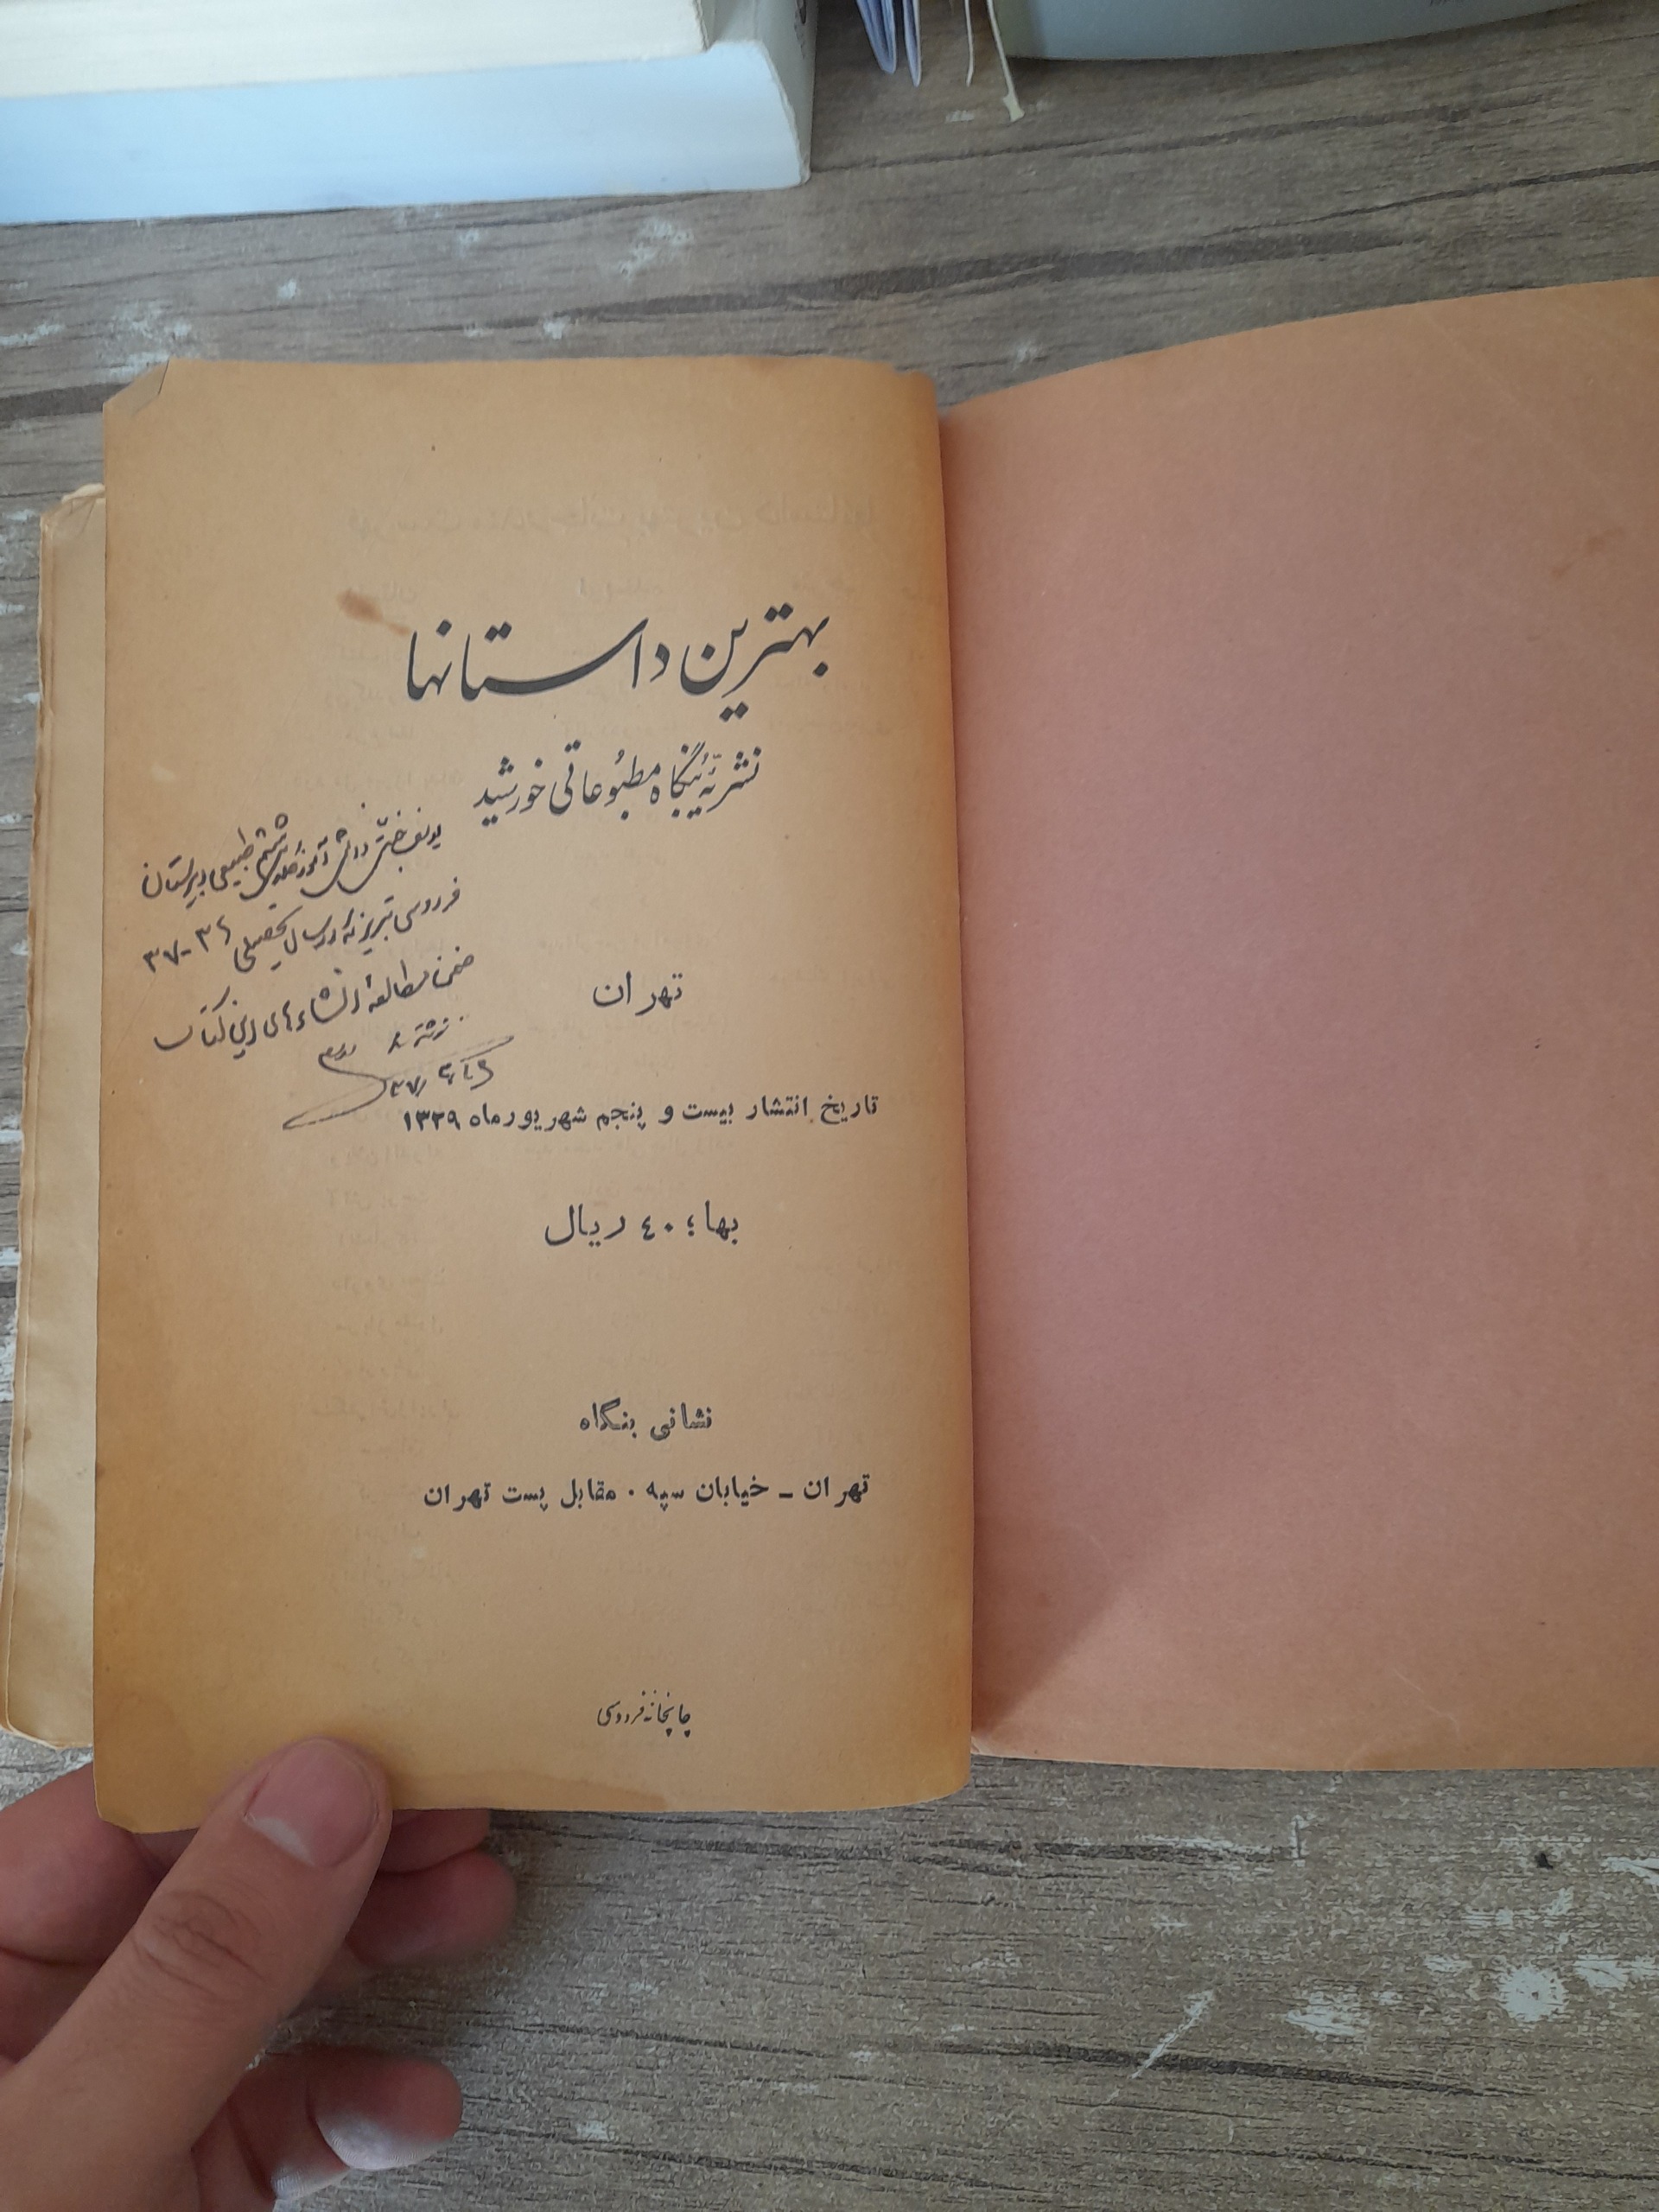 بهترین داستانها
نشریهٔ بنگاه مطبوعاتی خورشید
دانش آموز کلاس ششم طبیعی دبیرستان
فردوسی تبریز که در سال تحصیلی ۳۶-۳۷
ضمن مطالعه انشاءهای این کتاب
تهران
تاریخ انتشار بیست و پنجم شهریورماه ۱۳۳۹
بها؛ ۴۰ ریال
نشانی بنگاه
تهران ـ خیابان سپه ۰ مقابل پست تهران
چاپخانه فردوسی